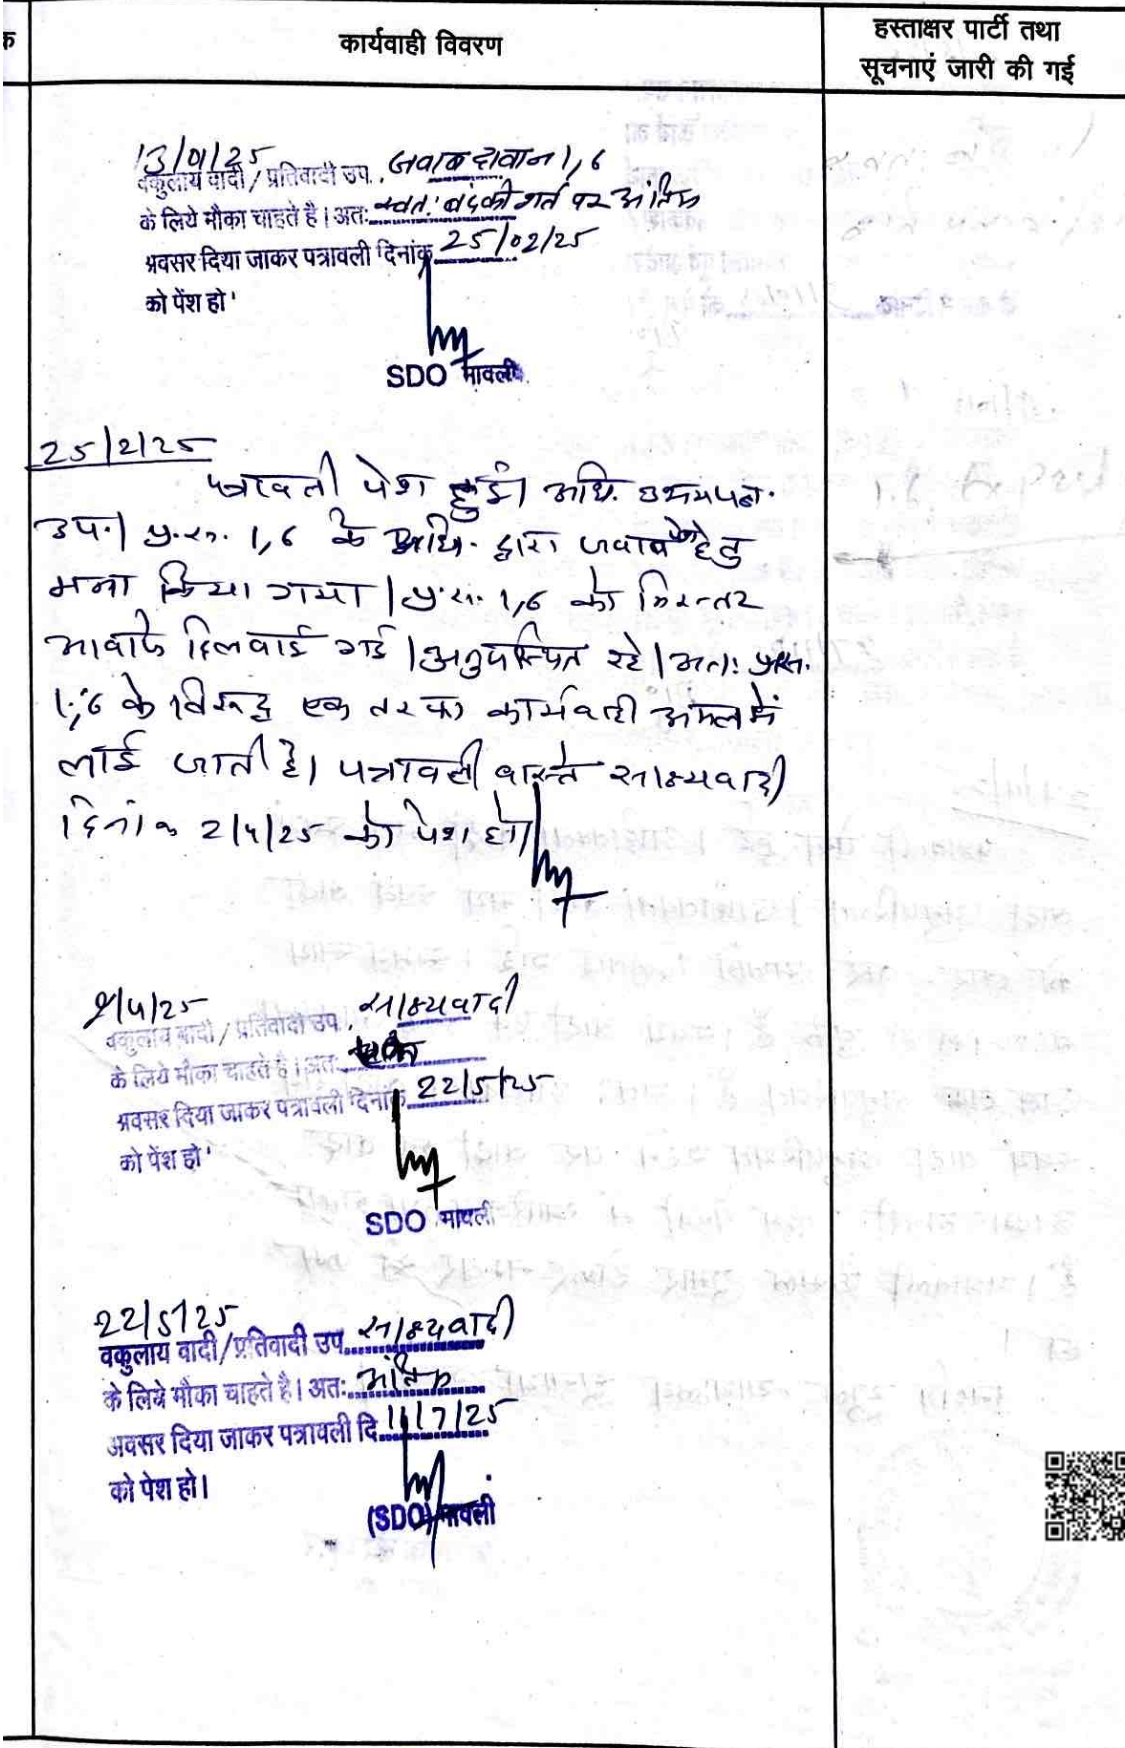 क
कार्यवाही विवरण
हस्ताक्षर पार्टी तथा
सूचनाएं जारी की गई
13/01/25
वकुलाय वादी / प्रतिवादी उप. जवाब दावा न 1, 6
के लिये मौका चाहते है। अतः स्वतः बंद की शर्त पर अंतिम
अवसर दिया जाकर पत्रावली दिनांक 25/02/25
को पेंश हो'
SDO मावली
25/2/25
पत्रावली पेश हुई। अधि. उभयपक्ष.
उप.। प्र.सं. 1,6 के अधि. द्वारा जवाब हेतु
मना किया गया। प्र.सं. 1,6 को निरन्तर
आवाजे दिलवाई गई। अनुपस्थित रहे। अतः प्र.सं.
1,6 के विरूद्ध एक तरफा कार्यवाही अमल में
लाई जाती है। पत्रावली वास्ते साक्ष्यवादी
दिनांक 2/4/25 को पेश हो।
2/4/25
वकुलाय वादी / प्रतिवादी उप. साक्ष्यवादी
के लिये मौका चाहते है। अतः
अवसर दिया जाकर पत्रावली दिनांक 22/5/25
को पेंश हो'
SDO मावली
22/5/25
वकुलाय वादी/प्रतिवादी उप. साक्ष्यवादी
के लिये मौका चाहते है। अतः अंतिम
अवसर दिया जाकर पत्रावली दि. 11/7/25
को पेश हो।
(SDO) मावली